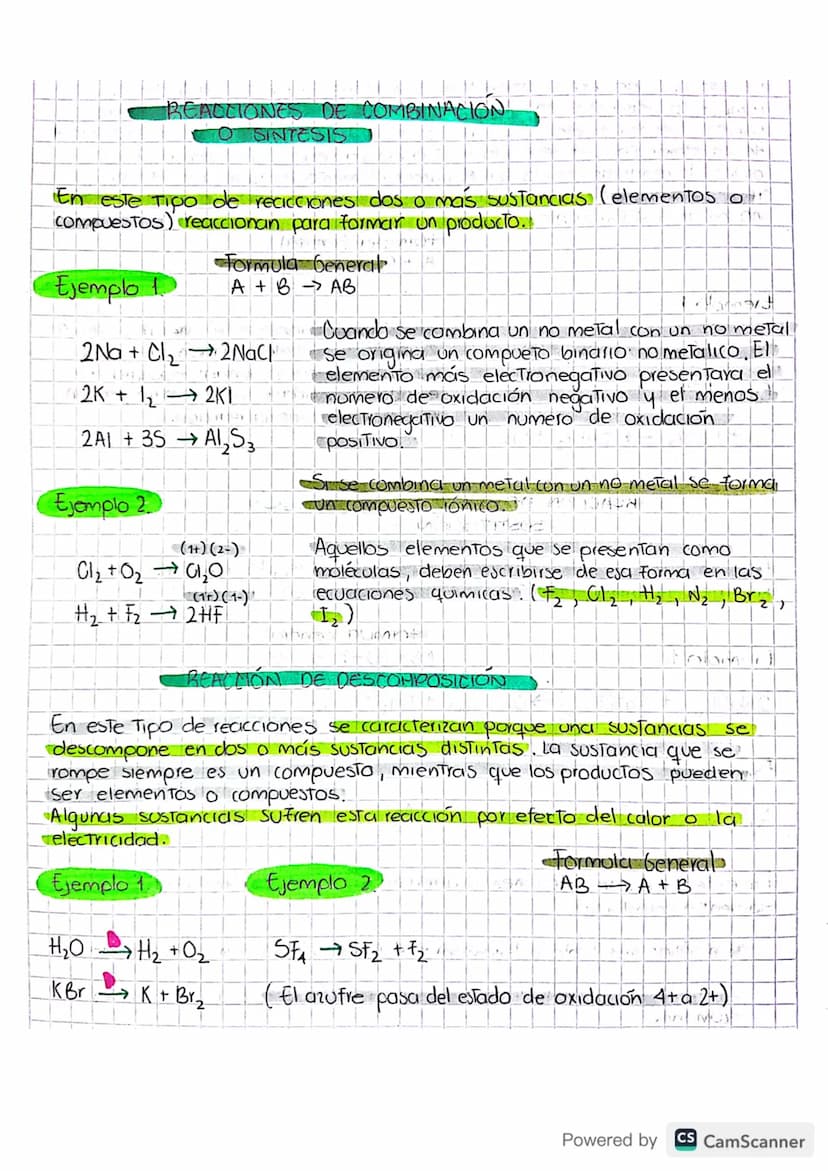 REACCIONES DE COMBINACIÓN
O SINTESIS
En este tipo de reacciones dos o más sustancias (elementos o
compuestos) reaccionan para formar un producto.
Formula General
Ejemplo 1
A + B → AB
2Na + Cl₂ → 2NaCl
2K + I₂ → 2KI
2Al + 3S → Al₂S₃
Cuando se combina un no metal con un no metal
se origina un compueto binario no metalico. El
elemento más electronegativo presentara el
numero de oxidación negativo y el menos
electronegativo un numero de oxidación
positivo.
Si se combina un metal con un no metal se forma
un compuesto iónico.
Ejemplo 2
(1+)(2-)
Cl₂ + O₂ → Cl₂O
(1+)(1-)
H₂ + F₂ → 2HF
Aquellos elementos que se presentan como
moléculas, deben escribirse de esa forma en las
ecuaciones quimicas. (F₂, Cl₂, H₂, N₂, Br₂,
I₂)
REACCIÓN DE DESCOMPOSICIÓN
En este tipo de reacciones se caracterizan porque una sustancias se
descompone en dos o más sustancias distintas. La sustancia que se
rompe siempre es un compuesto, mientras que los productos pueden
ser elementos o compuestos.
Algunas sustancias sufren esta reacción por efecto del calor o la
electricidad.
Formula General
AB → A + B
Ejemplo 1
H₂O → H₂ + O₂
KBr → K + Br₂
Ejemplo 2
SF₄ → SF₂ + F₂
(El azufre pasa del estado de oxidación 4+ a 2+)
Powered by CS CamScanner